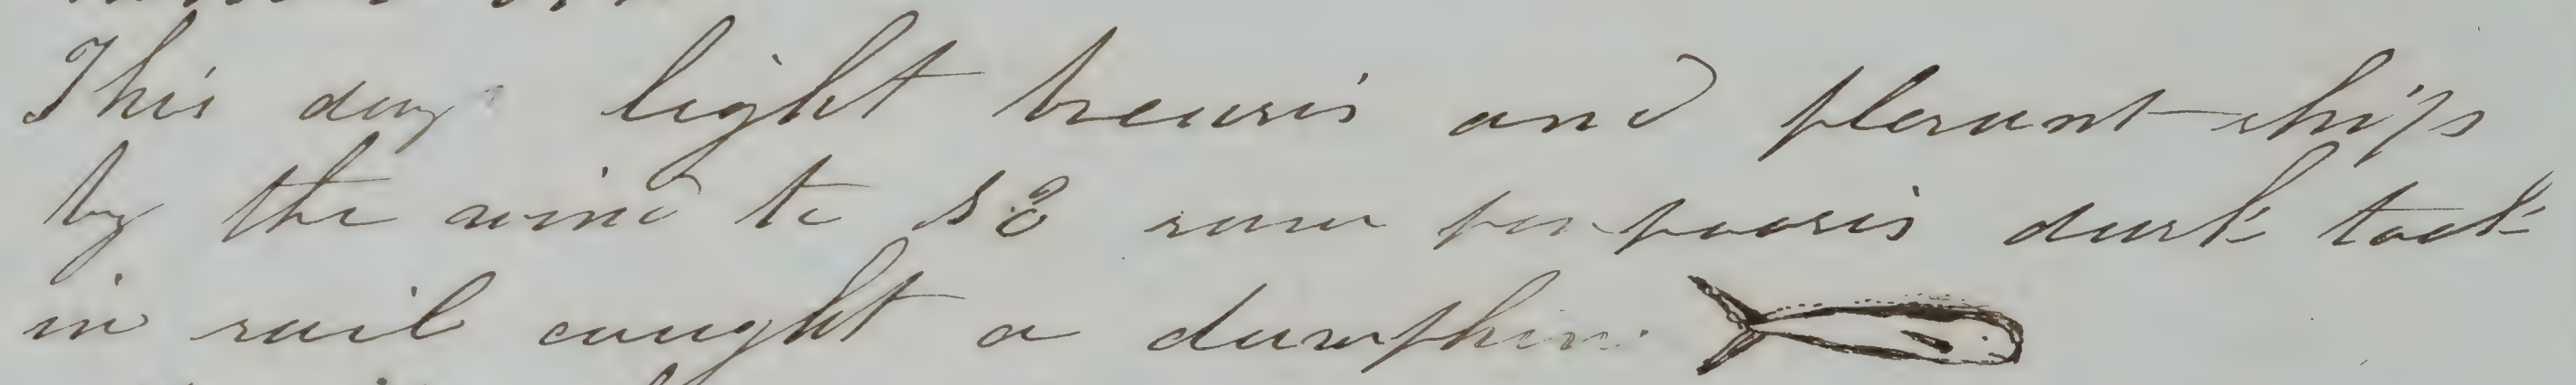 This day light breasis and plesant ships
by the wind to SE saw porpoosis dark took
in sail caught a dawphin